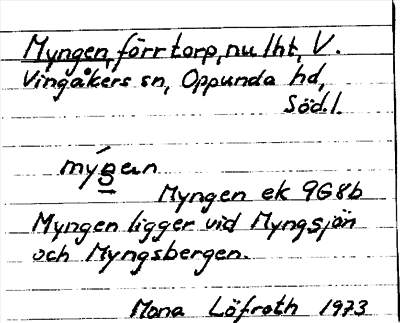 Myngen, förr torp, nu lht, V.
Vingåkers sn, Oppunda hd,
Söd.l.
mýŋen
Myngen ek 9G8b
Myngen ligger vid Myngsjön
och Myngsbergen.
Mona Löfroth 1973